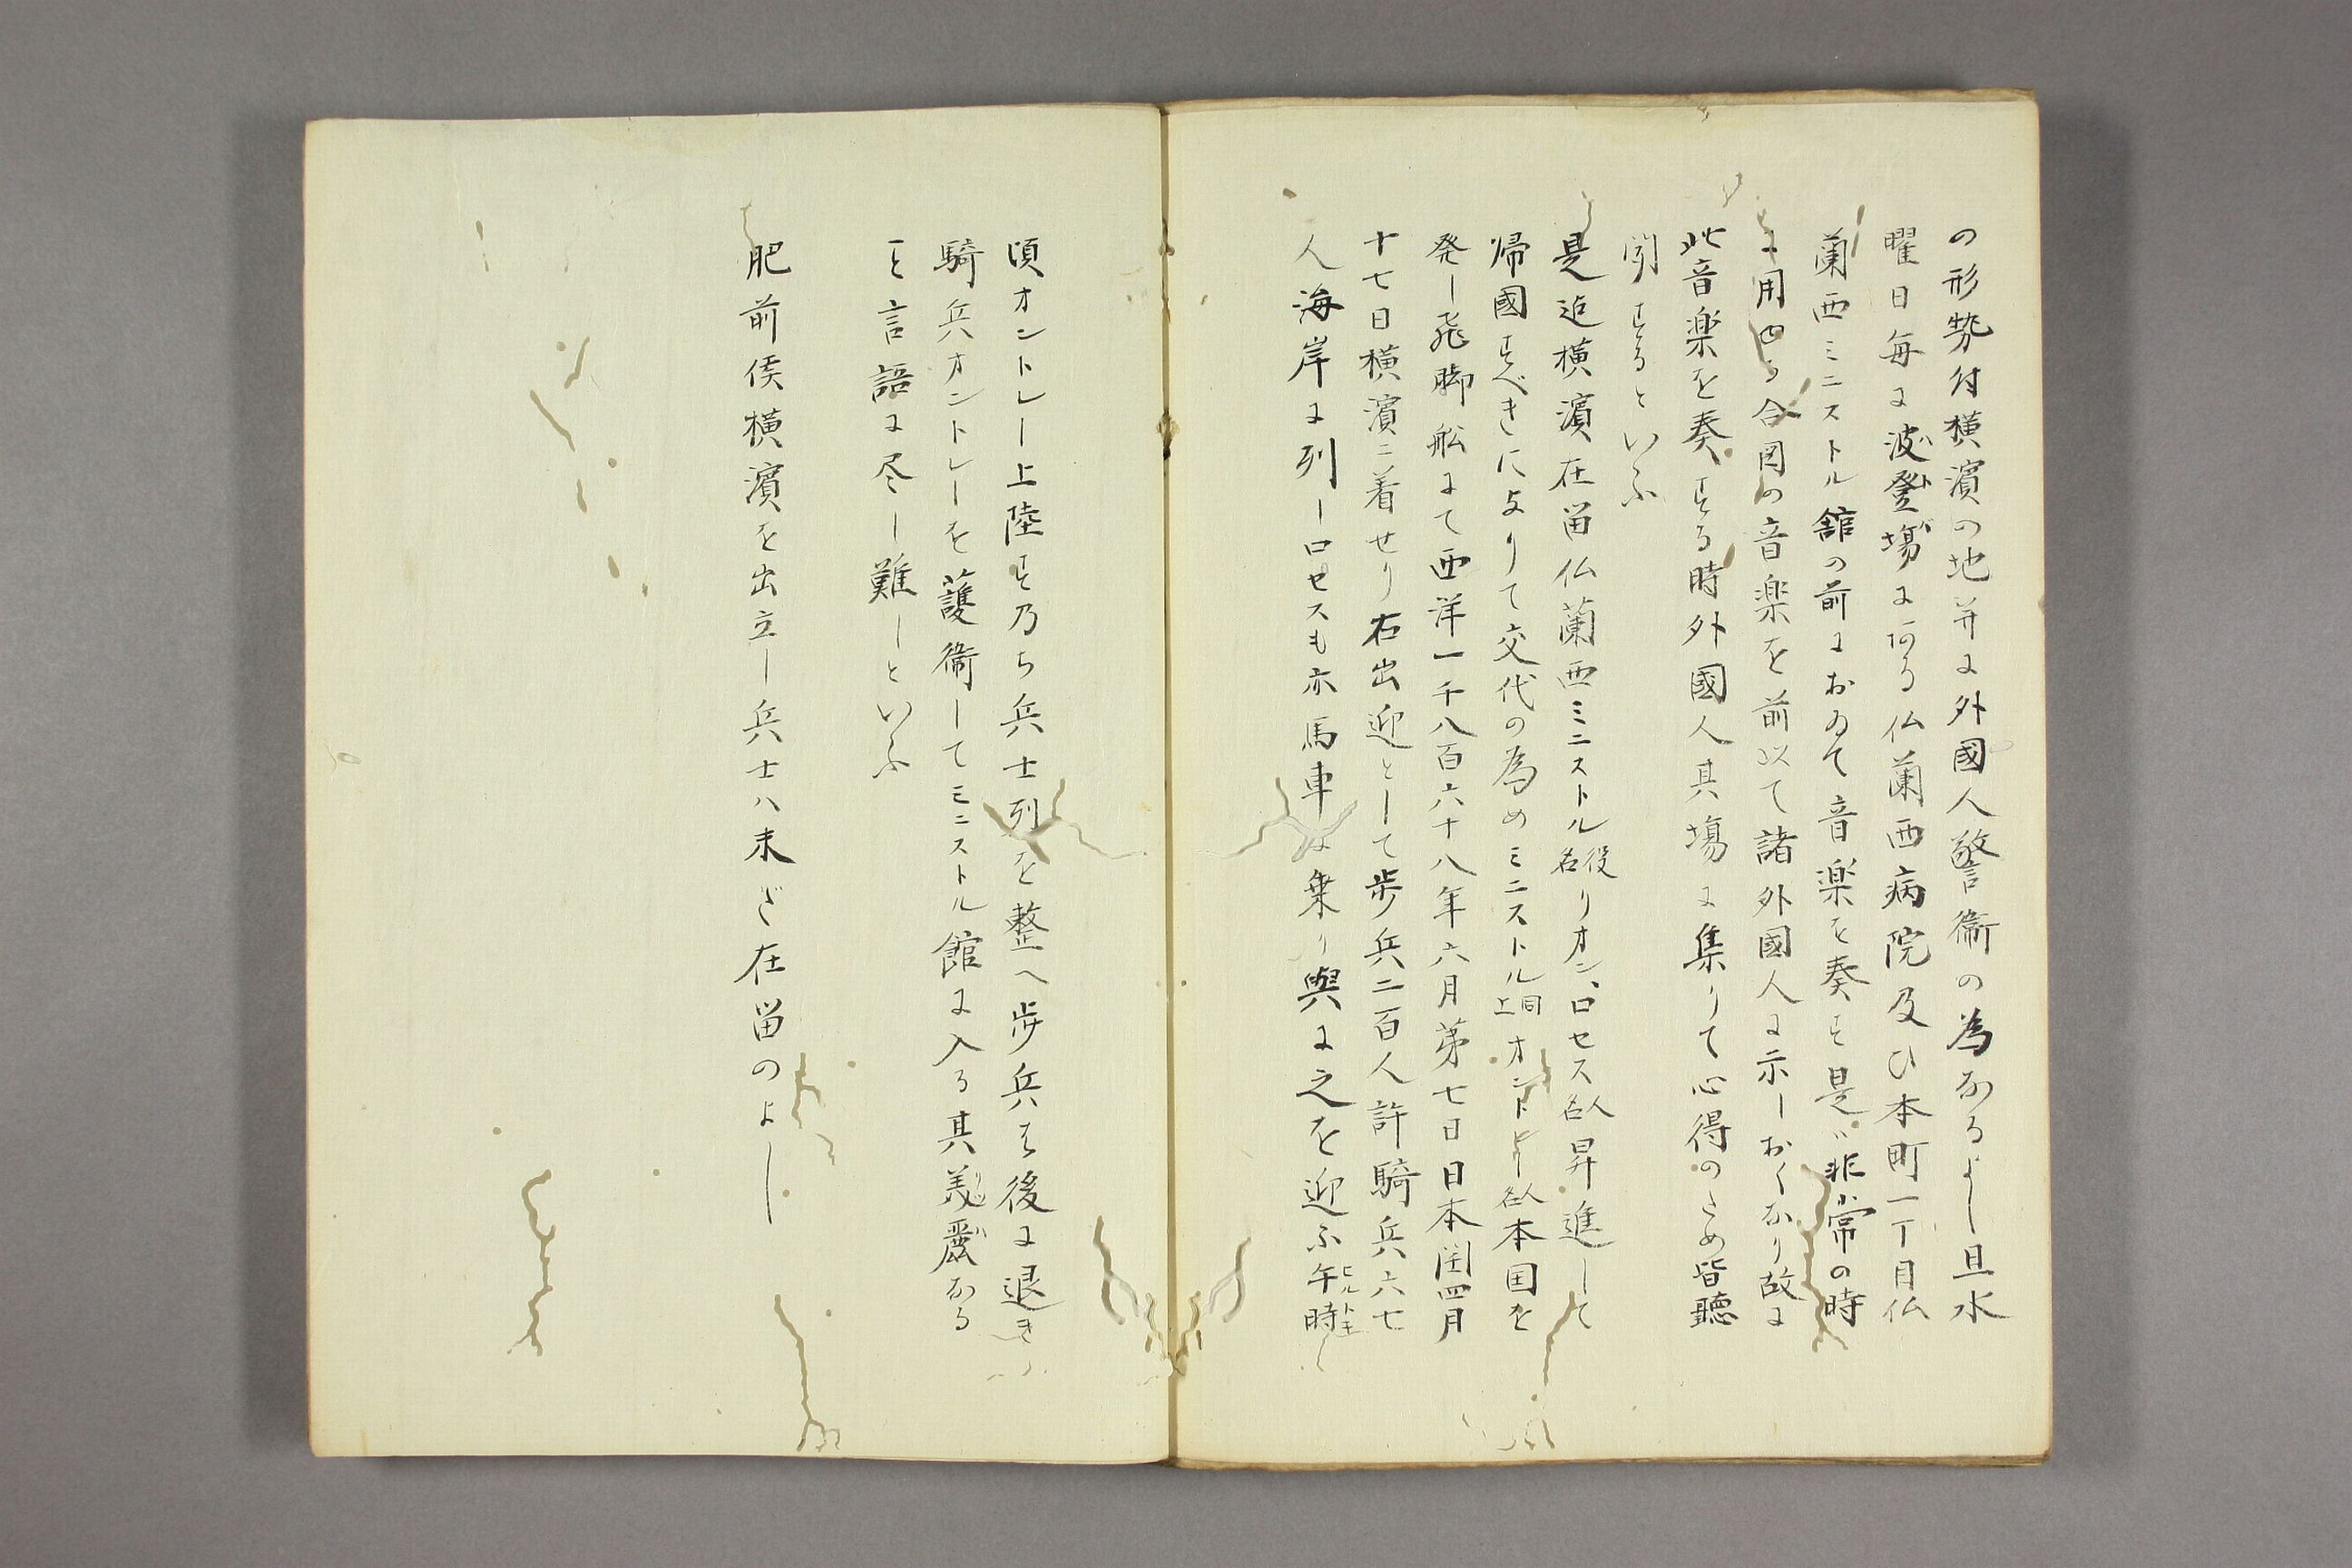 の形勢付横濱の地并に外國人警衞の為なるよし且水
曜日毎に波登場にある仏蘭西病院及ひ本町一丁目仏
蘭西ミニストル舘の前におゐて音楽を奏す是ハ非常の時
に用ゆる合図の音楽を前以て諸外國人に示しおくなり故に
此音楽を奏する時外國人其塲に集りて心得のため皆聽
聞するといふ
是迄横濱在留仏蘭西ミニストル役名リオン、ロセス人名昇進して
帰國すべきによりて交代の為めミニストル同上オントレー人名本国を
発し飛脚舩にて西洋一千八百六十八年六月第七日日本閏四月
十七日横濱ニ着せり右出迎として歩兵二百人許騎兵六七
人海岸に列しロセスも亦馬車に乗り輿に之を迎ふ午時ヒルトキ
頃オントレー上陸す乃ち兵士列を整へ歩兵は後に退き
騎兵オントレーを護衞してミニストル館に入る其美麗なる
こと言語に尽し難しといふ
肥前侯横濱を出立し兵士ハ未だ在留のよし